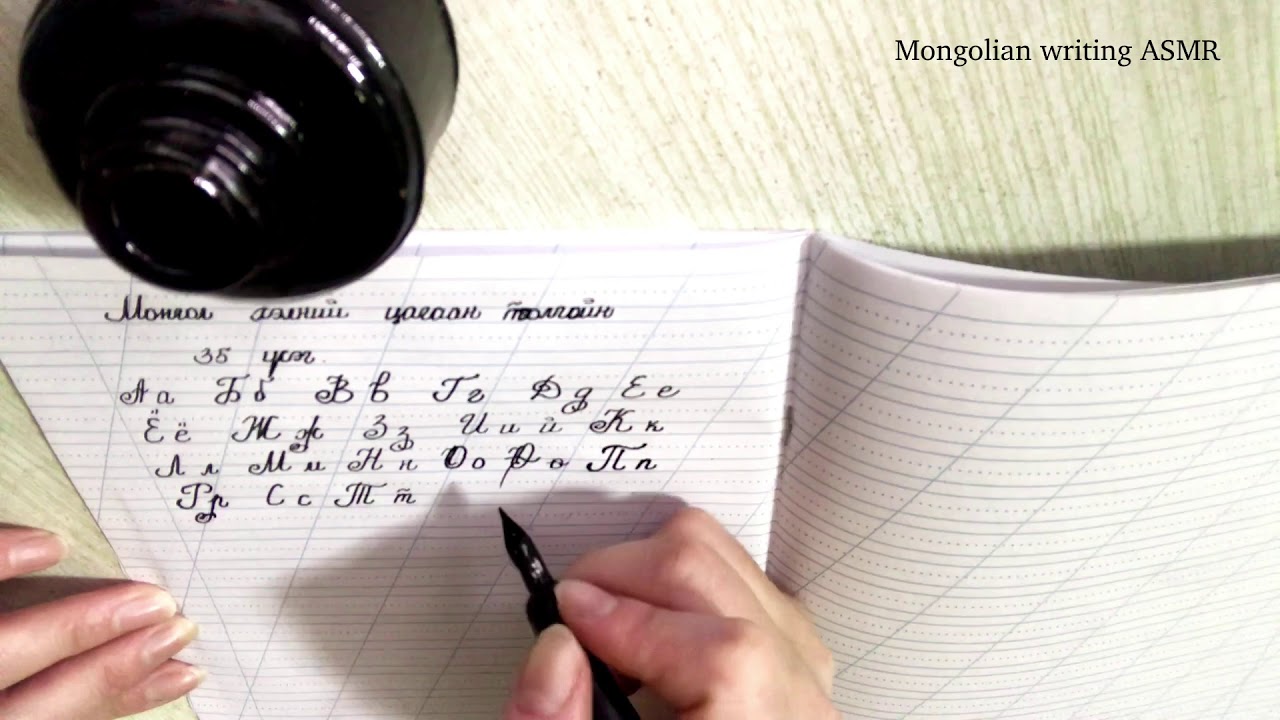 Mongolian writing ASMR
Монгол хэлний цагаан толгойн
35 үсэг.
Аа Бб Вв Гг Дд Ее
Ёё Жж Зз Ии й Кк
Лл Мм Нн Оо Өө Пп
Рр Сс Тт